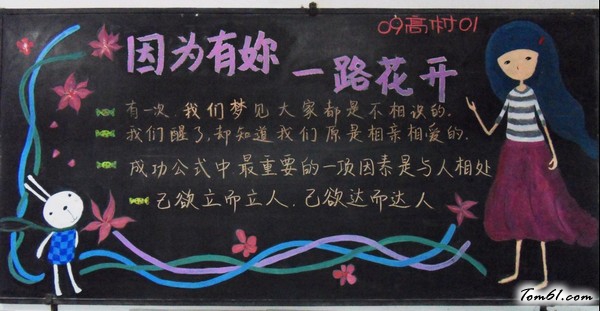 09高村01
因为有妳
一路花开
有一次,我们梦见大家都是不相识的.
我们醒了,却知道我们原是相亲相爱的.
成功公式中最重要的一项因素是与人相处
己欲立而立人,己欲达而达人
Tom61.com